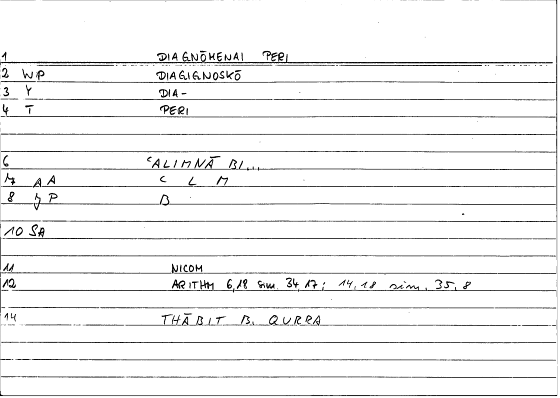 1 DIAGNŌMENAI PERI
2 WP DIAGIGNOSKŌ
3 Y DIA-
4 T PERI
6 ʿALIMNĀ BI...
7 AA C L M
8 JP B
10 SA
11 NICOM
12 ARITHM 6,18 sim. 34,17; 14,18 sim. 35,8
14 THĀBIT B. QURRA